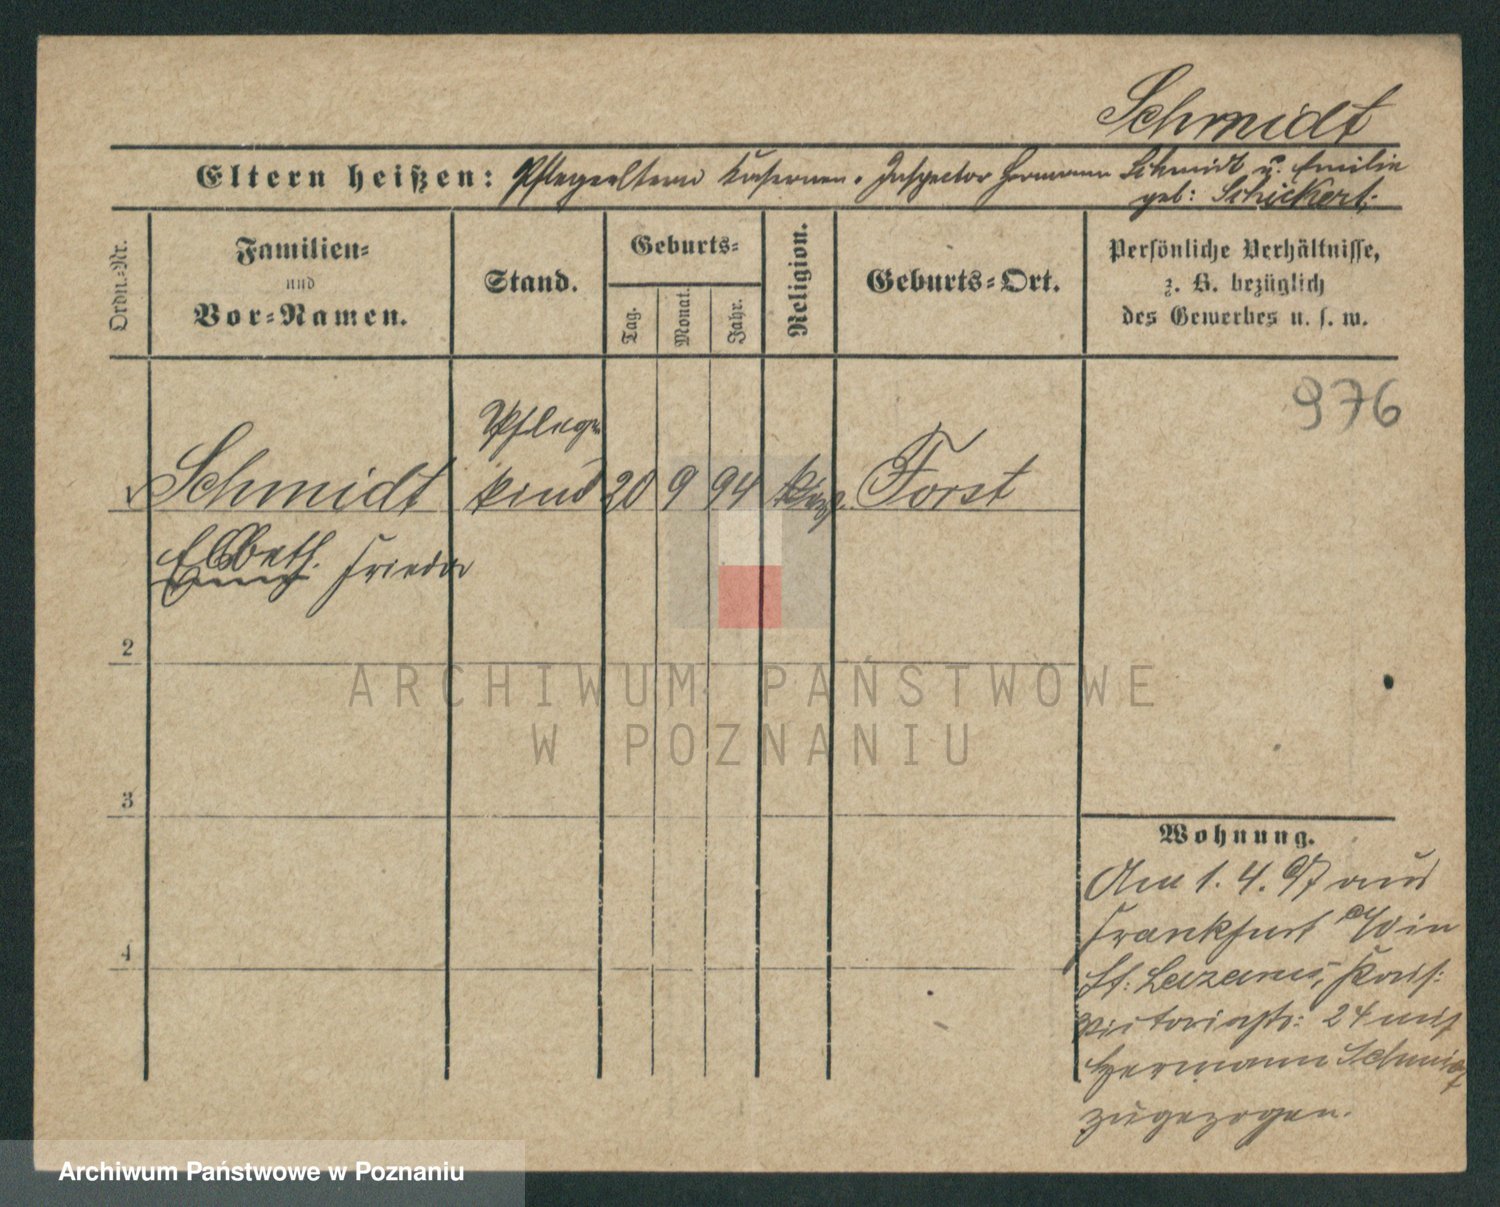 Schmidt
Eltern heißen: Pflegeeltern Kasernen-Inspector Hermann Schmidt u. Emilie
geb: Schickert.
Ordn.-Nr.
Familien-
und
Vor-Namen.
Stand.
Geburts-
Tag.
Monat.
Jahr.
Religion.
Geburts-Ort.
Persönliche Verhältnisse,
z. B. bezüglich
des Gewerbes u. s. w.
976
Pflege-
Schmidt kind 20 9 94 Forst
Elsbeth. Frieda
2
3
4
Wohnung.
Am 1. 4. 97 aus
Frankfurt a/O in
St: Lazarus,
Victoriastr: 24 mit
Hermann Schmidt
zugezogen.
ARCHIWUM PAŃSTWOWE
W POZNANIU
Archiwum Państwowe w Poznaniu